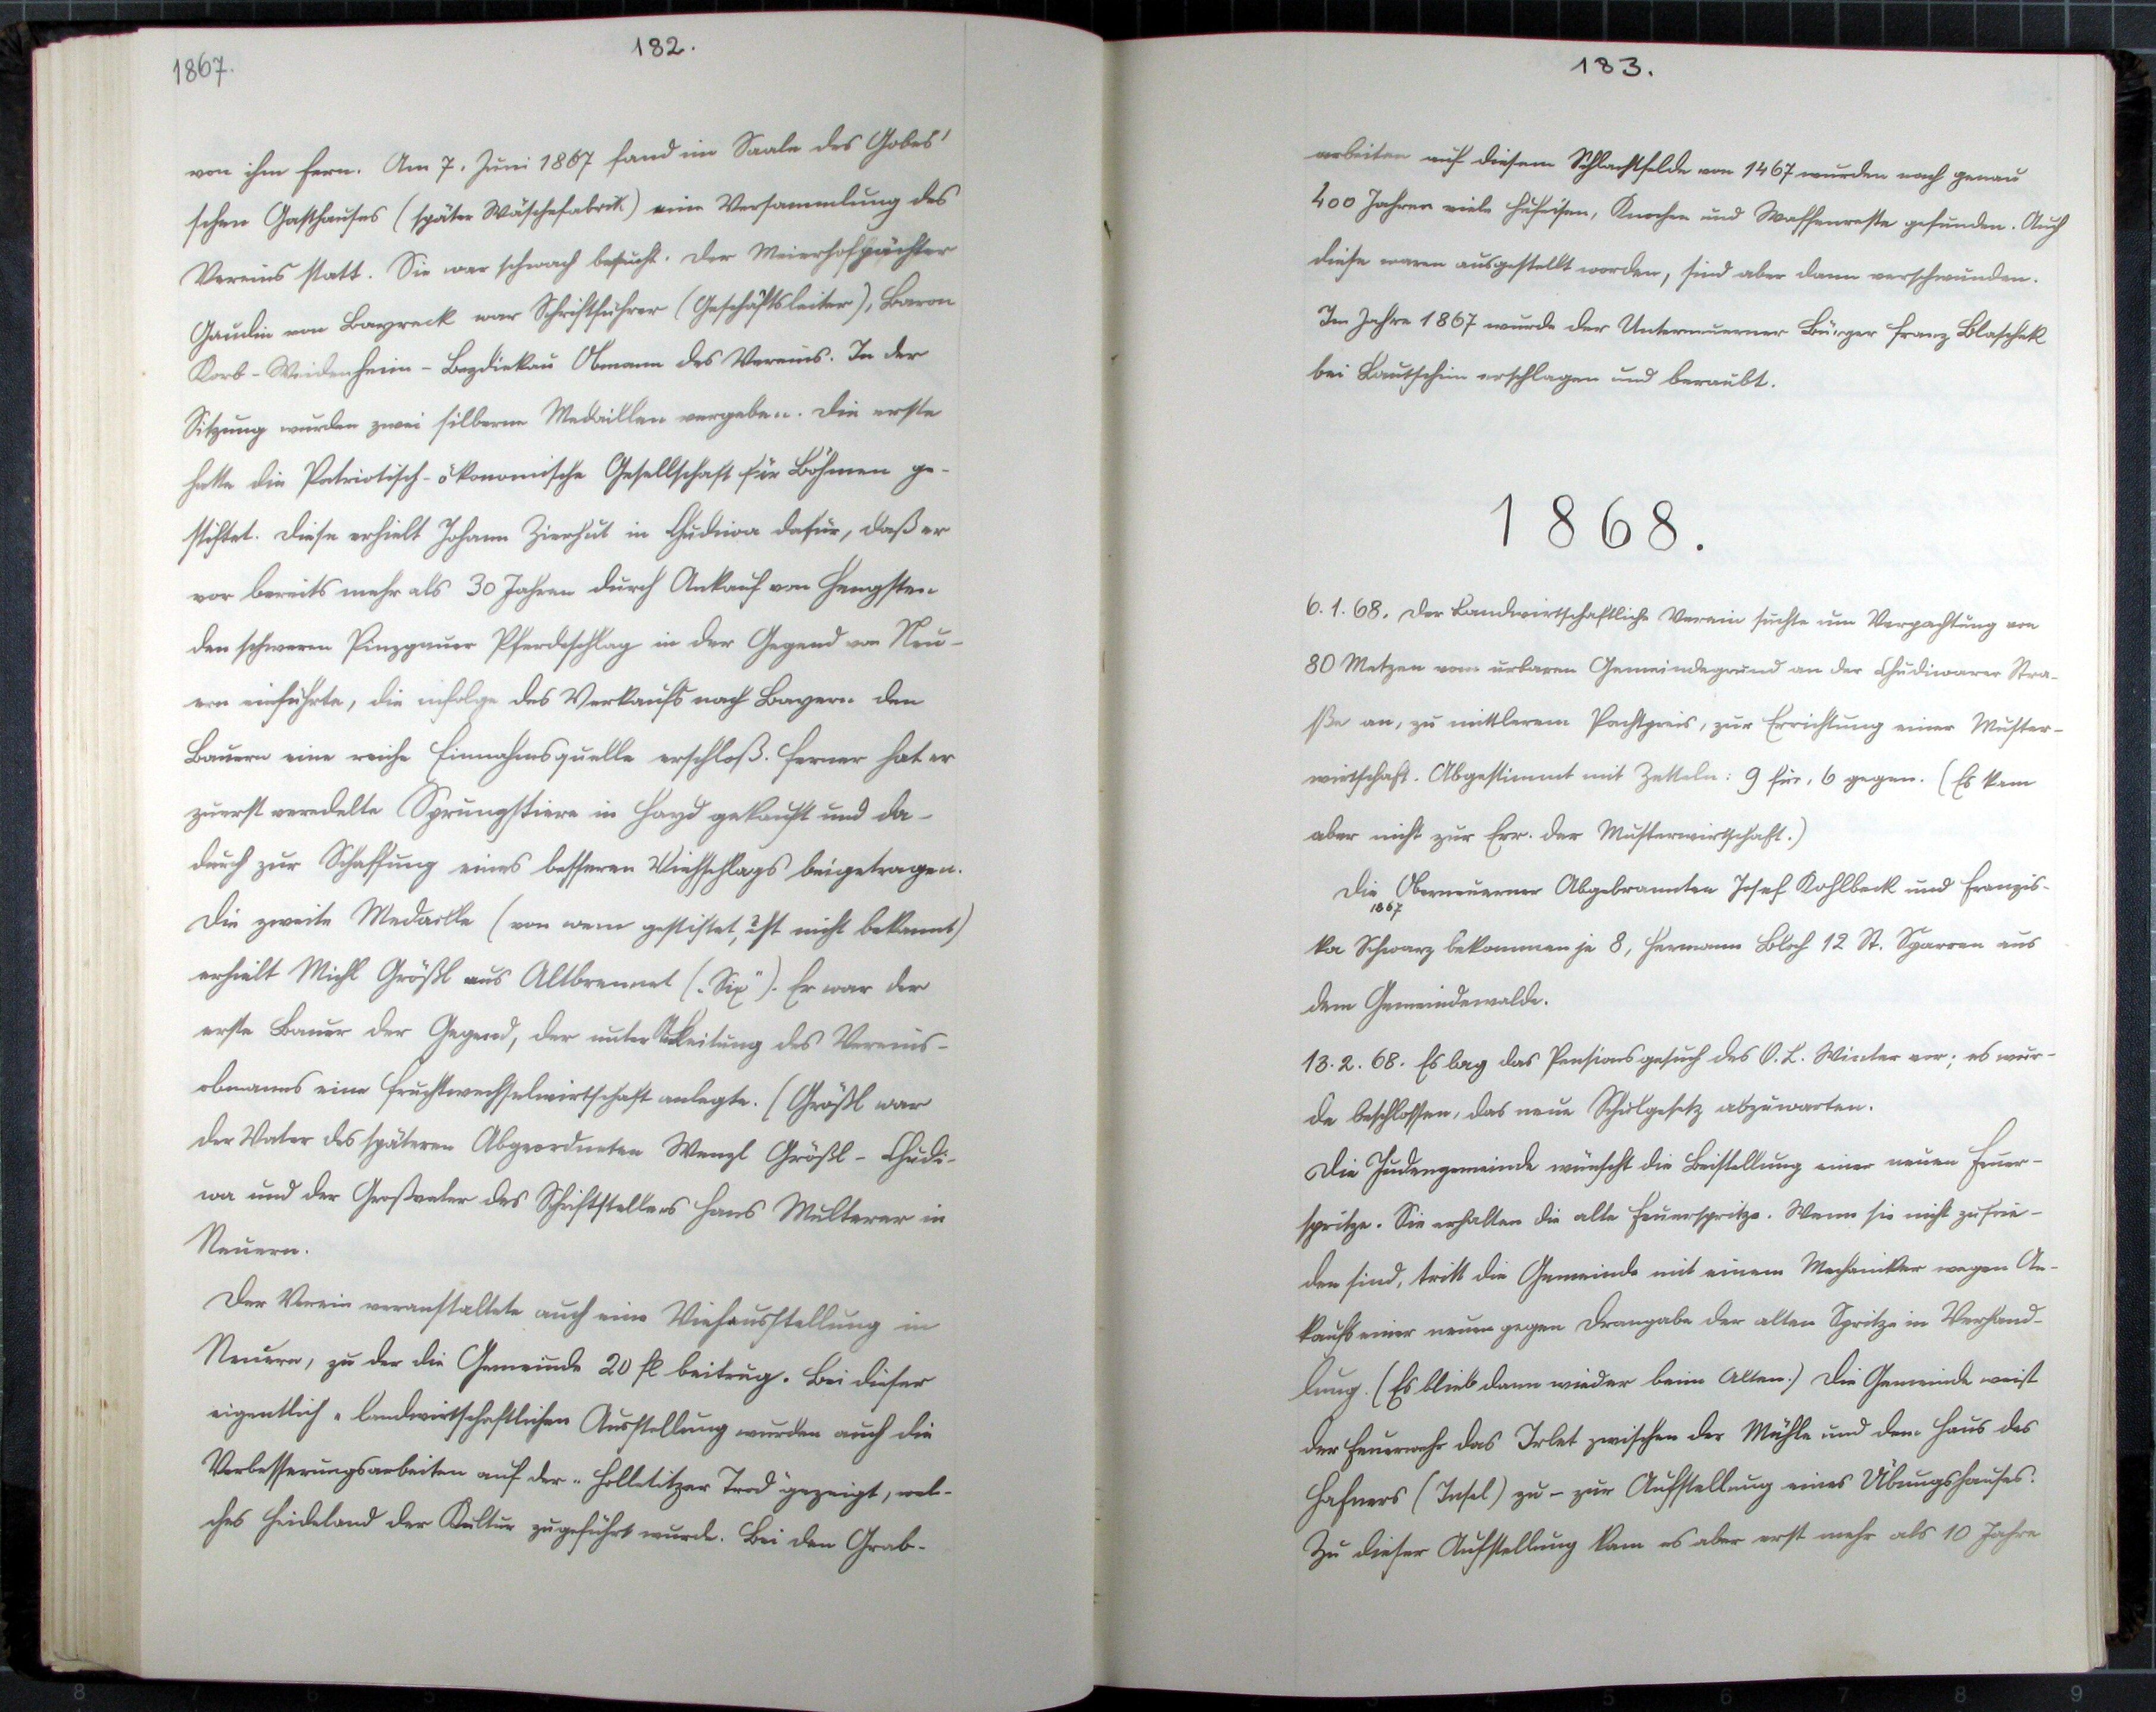 1867.
182.
von ihm fern. Am 7. Juni 1867 fand im Saale des Gobes'
schen Gasthauses (später Wäschefabrik) eine Versammlung des
Vereins statt. Sie war schwach besucht. Der Meierhofpächter
Gaudin von Bayreck war Schriftführer (Geschäftsleiter), Baron
Korb-Weidenheim-Bezdiekau Obmann des Vereins. In der
Sitzung wurden zwei silberne Medaillen vergeben. Die erste
hatte die Patriotisch-ökonomische Gesellschaft für Böhmen ge-
stiftet. Diese erhielt Johann Zierhut in Chudiwa dafür, daß er
vor bereits mehr als 30 Jahren durch Ankauf von Hengsten
den schweren Pinzgauer Pferdeschlag in der Gegend von Neu-
ern einführte, die infolge des Verkaufs nach Bayern den
Bauern eine reiche Einnahmsquelle erschloß. Ferner hat er
zuerst veredelte Sprungstiere in Hayd gekauft und da-
durch zur Schaffung eines besseren Viehschlags beigetragen.
Die zweite Medaille (von wem gestiftet, ist nicht bekannt)
erhielt Michl Größl aus Altbrennet („Six"). Er war der
erste Bauer der Gegend, der unter Anleitung des Vereins-
obmanns eine Fruchtwechselwirtschaft anlegte. (Größl war
der Vater des späteren Abgeordneten Wenzl Größl-Chudi-
wa und der Großvater des Schriftstellers Hans Multerer in
Neuern.
Der Verein veranstaltete auch eine Viehausstellung in
Neuern, zu der die Gemeinde 20 fl beitrug. Bei dieser
eigentlich „landwirtschaftlichen Ausstellung wurden auch die
Verbesserungsarbeiten auf der „Holletitzer Trad" gezeigt, wel-
ches Heideland der Kultur zugeführt wurde. Bei den Grab-
183.
arbeiten auf diesem Schlachtfelde von 1467 wurden nach genau
400 Jahren viele Hufeisen, Knochen und Waffenreste gefunden. Auch
diese waren ausgestellt worden, sind aber dann verschwunden.
Im Jahre 1867 wurde der Unterneuerner Bürger Franz Blaschek
bei Lautschim erschlagen und beraubt.
1868.
6.1.68. Der Landwirtschaftliche Verein suchte um Verpachtung von
80 Metzen vom urbaren Gemeindegrund an der Chudiwarer Stra-
ße an, zu mittlerem Pachtpreis, zur Errichtung einer Muster-
wirtschaft. Abgestimmt mit Zetteln: 9 für, 6 gegen. (Es kam
aber nicht zur Err. der Musterwirtschaft.)
Die Oberneuerner Abgebrannten Josef Kohlbeck und Franzis-
1867
ka Schwarz bekommen je 8, Hermann Bloch 12 St. Sparren aus
dem Gemeindewalde.
13.2.68. Es lag das Pensionsgesuch des O.L. Winter vor; es wur-
de beschlossen, das neue Schulgesetz abzuwarten.
Die Judengemeinde wünscht die Beistellung einer neuen Feuer-
spritze. Sie erhalten die alte Feuerspritze. Wenn sie nicht zufrie-
den sind, tritt die Gemeinde mit einem Mechaniker wegen An-
kaufs einer neuen gegen Drangabe der alten Spritze in Verhand-
lung. (Es blieb dann wieder beim Alten.) Die Gemeinde weist
der Feuerwehr das Irlet zwischen der Mühle und dem Haus des
Hafners (Insel) zu - zur Aufstellung eines Übungshauses.
Zu dieser Aufstellung kam es aber erst mehr als 10 Jahre